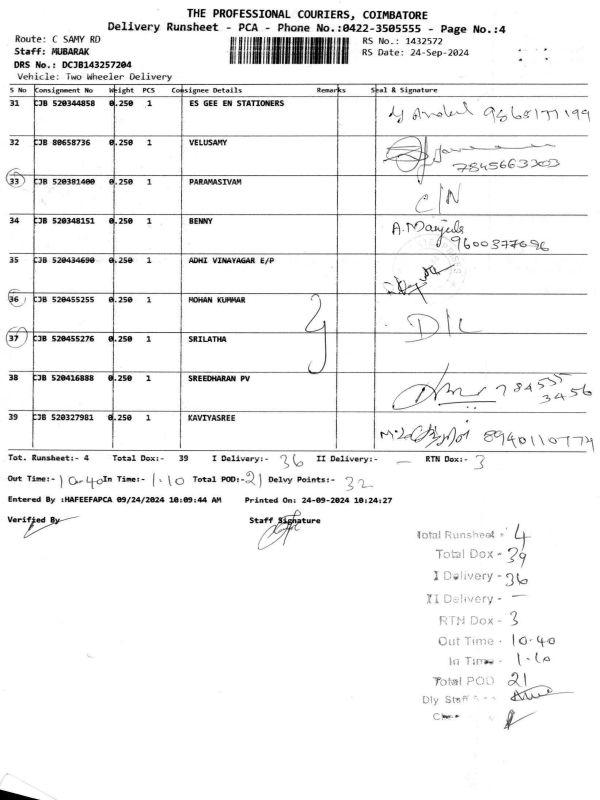 THE PROFESSIONAL COURIERS, COIMBATORE
Delivery Runsheet - PCA - Phone No.:0422-3505555 - Page No.:4
Route: C SAMY RD
RS No.: 1432572
Staff: MUBARAK
RS Date: 24-Sep-2024
DRS No.: DCJB143257204
Vehicle: Two Wheeler Delivery
S No Consignment No Weight PCS Consignee Details Remarks Seal & Signature
31 CJB 520344858 0.250 1 ES GEE EN STATIONERS
32 CJB 80658736 0.250 1 VELUSAMY 7845663303
33 CJB 520381400 0.250 1 PARAMASIVAM C/N
34 CJB 520348151 0.250 1 BENNY A.Manjula 9600377696
35 CJB 520434690 0.250 1 ADHI VINAYAGAR E/P
36 CJB 520455255 0.250 1 MOHAN KUMMAR D/L
37 CJB 520455276 0.250 1 SRILATHA
38 CJB 520416888 0.250 1 SREEDHARAN PV 784535 3456
39 CJB 520327981 0.250 1 KAVIYASREE 8940110774
Tot. Runsheet:- 4 Total Dox:- 39 I Delivery:- 36 II Delivery:- — RTN Dox:- 3
Out Time:- 10-40 In Time:- 1.10 Total POD:- 21 Delvy Points:- 32
Entered By :HAFEEFAPCA 09/24/2024 10:09:44 AM Printed On: 24-09-2024 10:24:27
Verified By Staff Signature
Total Runsheet - 4
Total Dox - 39
I Delivery - 36
II Delivery - —
RTN Dox - 3
Out Time - 10-40
In Time - 1-10
Total POD 21
Dly Staff